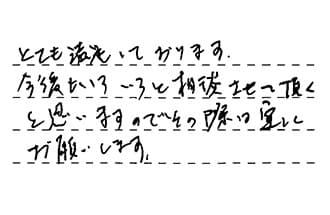 とても満足しております.
今後もいろいろと相談させて頂く
と思いますのでその際は宜しく
お願いします.